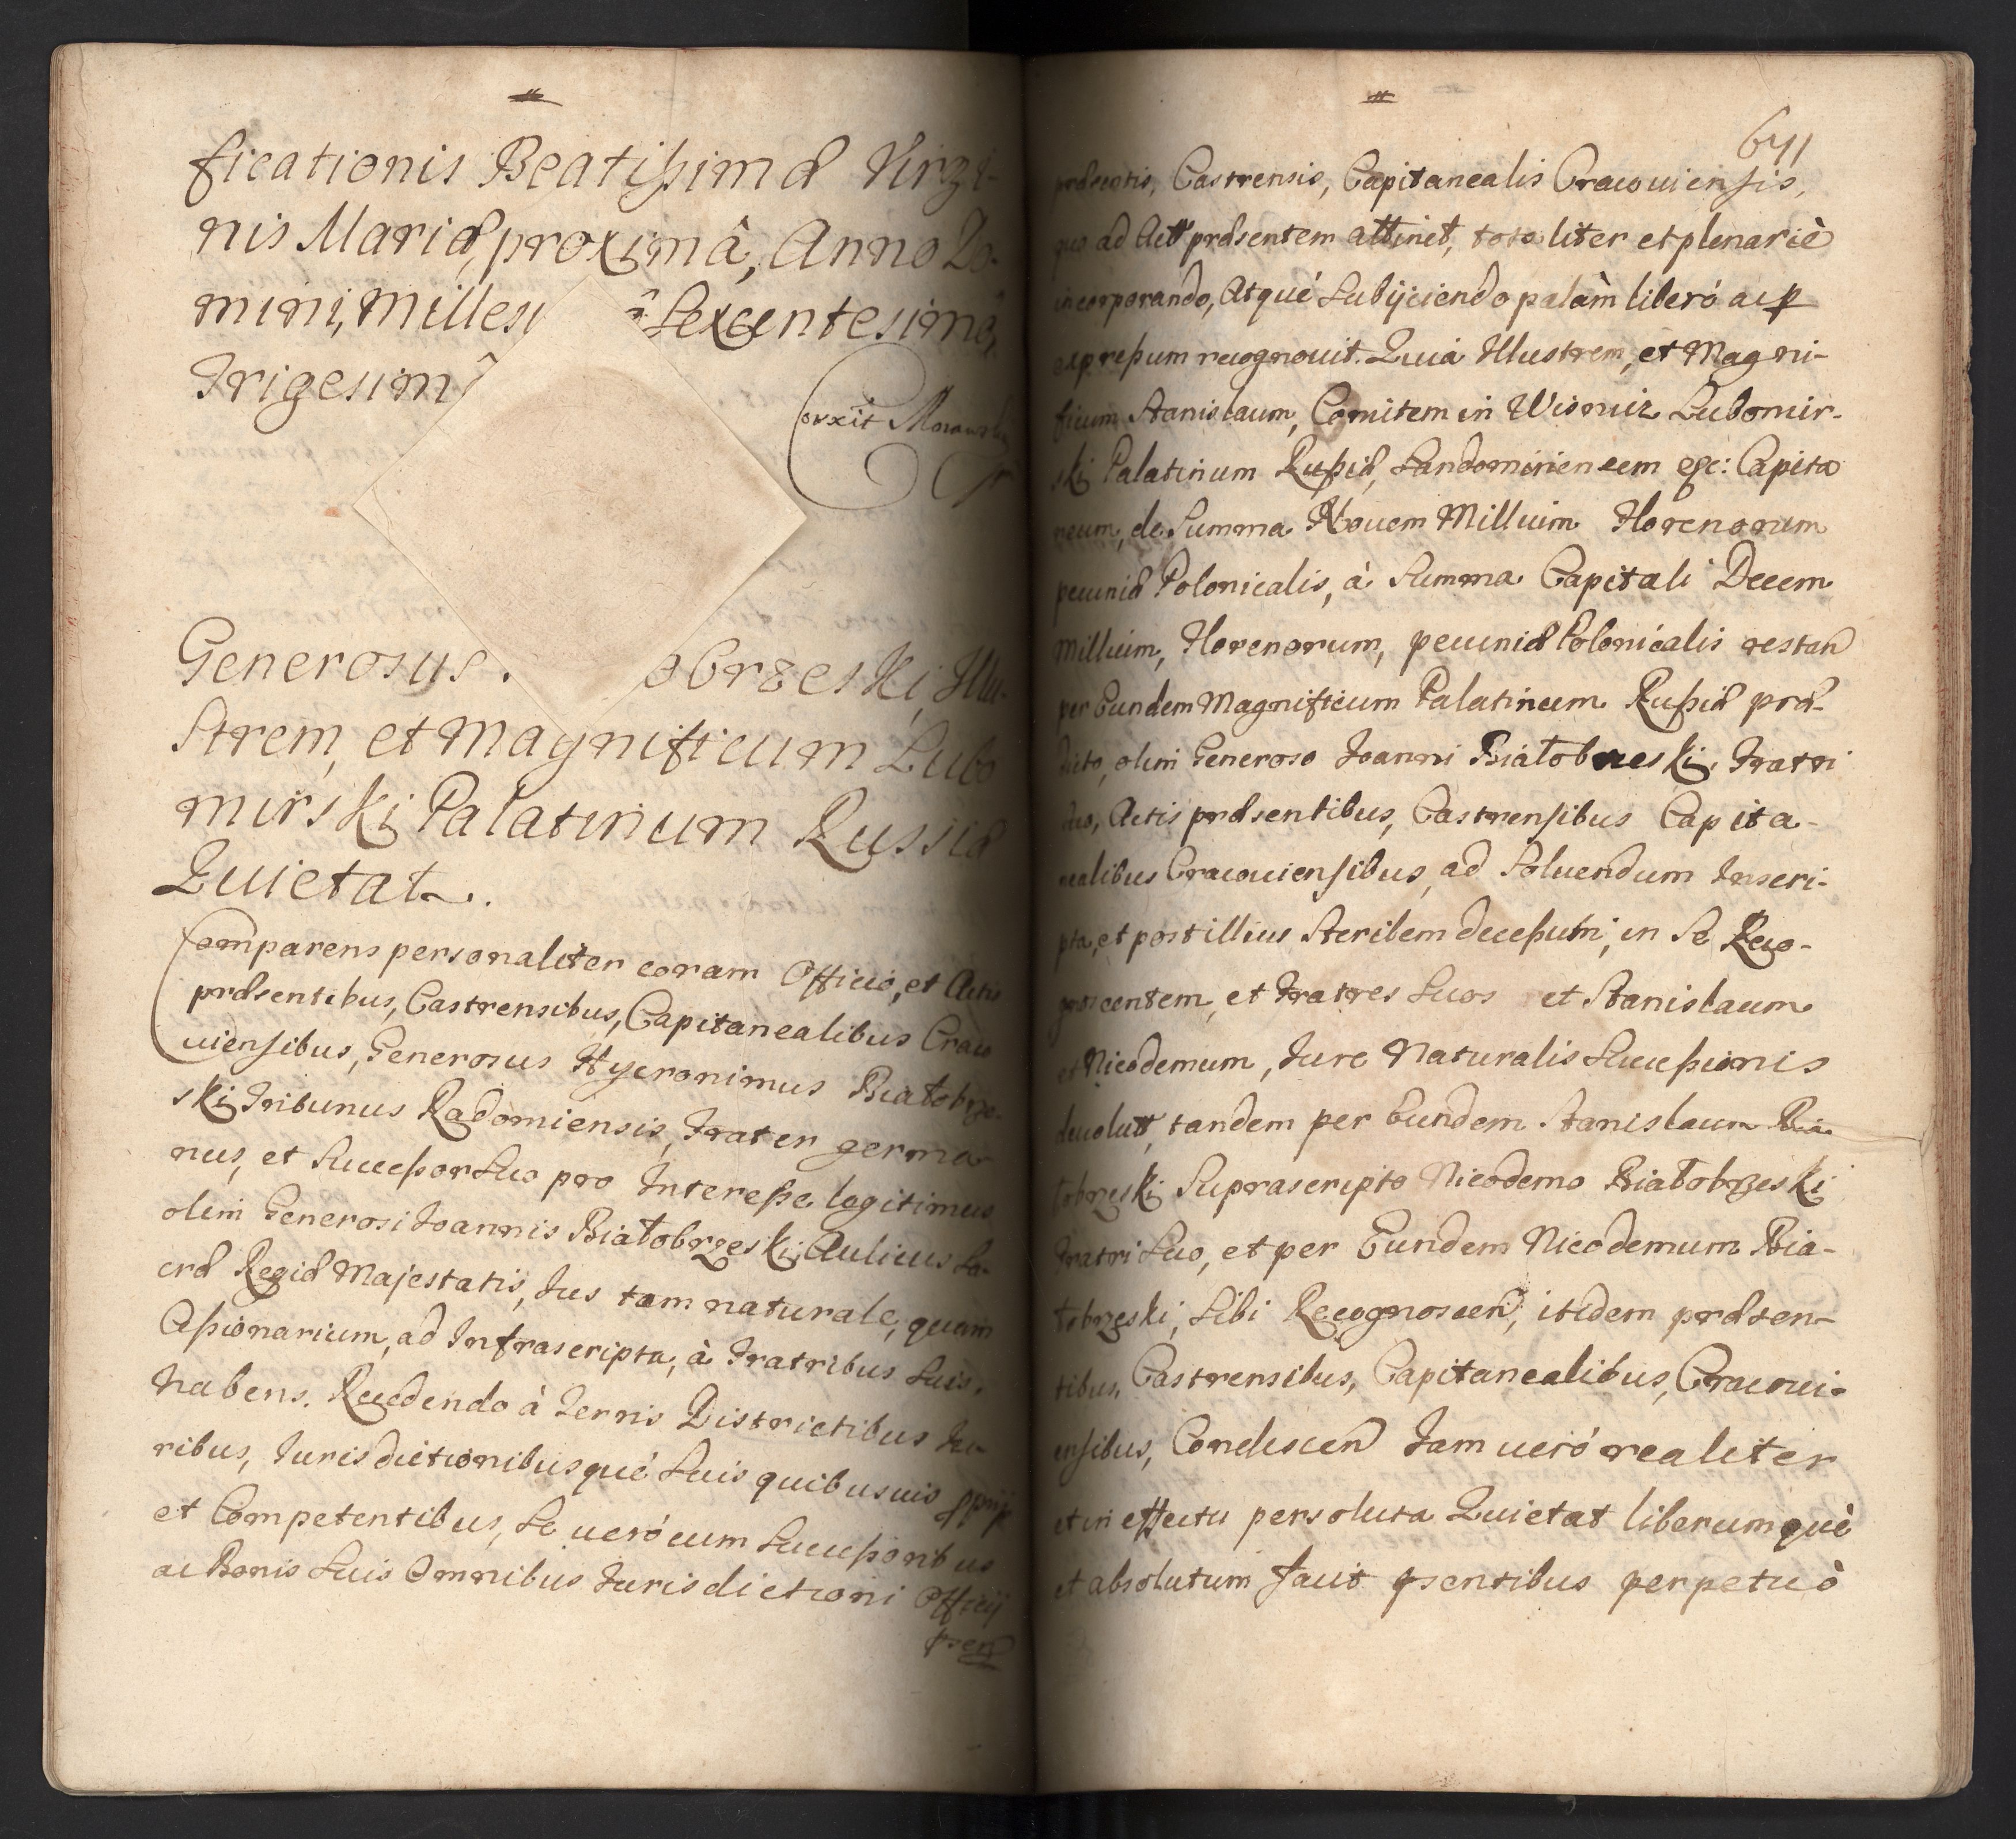 ficationis Beatißimæ Virgi-
nis Mariæ, proximâ, Anno Do-
mini, Milles Sexcentesimô,
Trigesimô
Corxit
Generosus. obrzeski, Illu-
strem, et Magnificum Lubo
mirski Palatinum Russiæ
Quietat.
Comparens personaliter coram Officio, et Actis
præsentibus, Castrensibus, Capitanealibus Craco
uiensibus, Generosus Hyeronimus Białobrze-
ski Tribunus Radomiensis, Frater germa-
nus, et Succeßor Suo pro Intereße legitimus
olim Generosi Joannis Białobrzeski, Aulicus Sa-
cræ Regiæ Majestatis, Jus tam naturale, quam
Aßionarium, ad Infrascripta, à Fratribus Suis,
habens. Recedendo à Terris Districtibus Ju-
ribus, Jurisdictionibusqué Suis quibusuis
et Competentibus, Se ueró cum Succeßoribus
ac Bonis Suis Omnibus Jurisdictioni Officij
præsen
641
præsentis, Castrensis, Capitanealis Cracouiensis,
quo ad Actt præsentem attinet, totaliter et plenariè
incorporando, Atqué Subijciendo palàm liberó ac p
expreßum recognouit. Quia Illustrem, et Magni-
ficum Stanislaum, Comitem in Wisnicz Lubomir-
ski Palatinum Rußiæ, Sandomiriensem &c: Capita
neum, de Summa Nouem Millium Florenorum
pecuniæ Polonicalis, à Summa Capitali Decem
Millium, Florenorum, pecuniæ Polonicalis restan
per Eundem Magnificum Palatinum Rußiæ præ-
dicto, olim Generoso Joanni Białobrzeski, Fratri
suo, Actis præsentibus, Castrensibus Capita-
nealibus Cracouiensibus, ad Soluendum Inscri-
pta, et post illius Sterilem deceßum, in Se Reco-
gnoscentem, et Fratres Suos et Stanislaum
et Nicodemum, Jure Naturalis Succeßionis
deuolutt, tandem per Eundem Stanislaum Bia
łobrzeski Suprascripto Nicodemo Białobrzeski
Fratri Suo, et per Eundem Nicodemum Bia-
łobrzeski, Sibi Recognoscen, itidem præsen-
tibus, Castrensibus, Capitanealibus, Cracoui-
ensibus, Condescen Jam ueró realiter
et in effectu persoluta Quietat liberumquè
et absolutum facit psentibus perpetuò